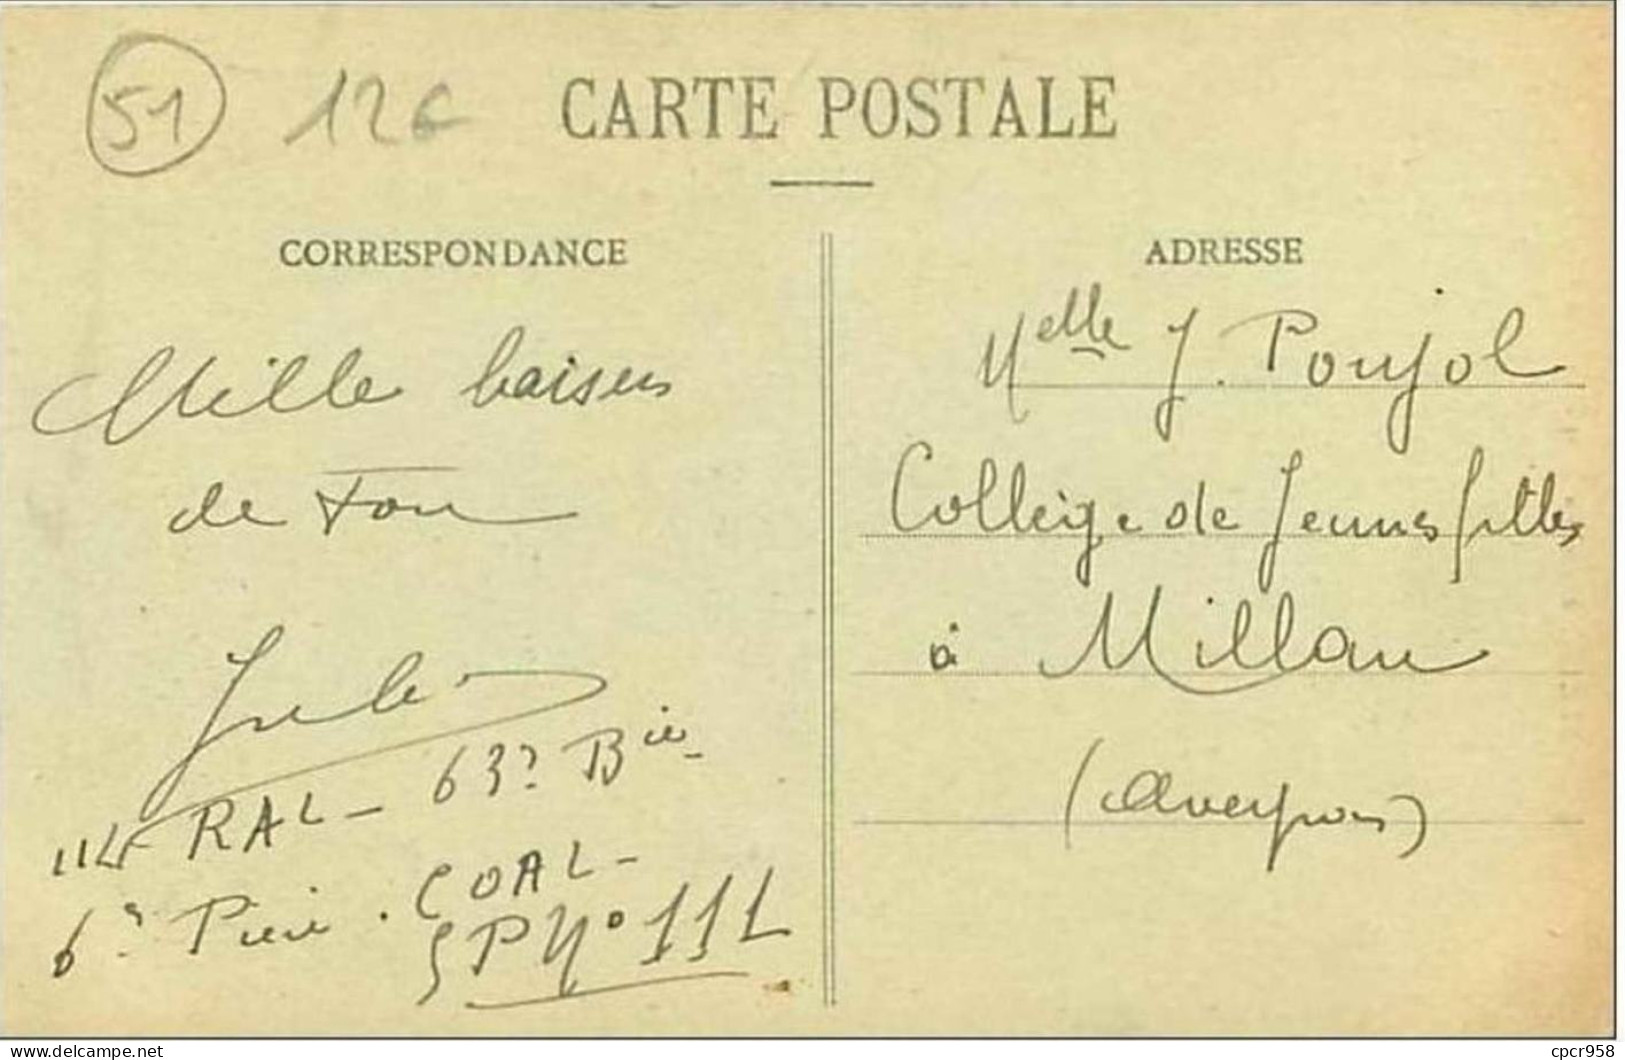 51 12€
CARTE POSTALE
CORRESPONDANCE
Mille baisers
de Ton
Jules
114 RAL - 63e Bie
6e Pièce . COAL -
SP No 114
ADRESSE
Melle J. Poujol
Collège de Jeunes filles
à Millau
(Aveyron)
cpcr958